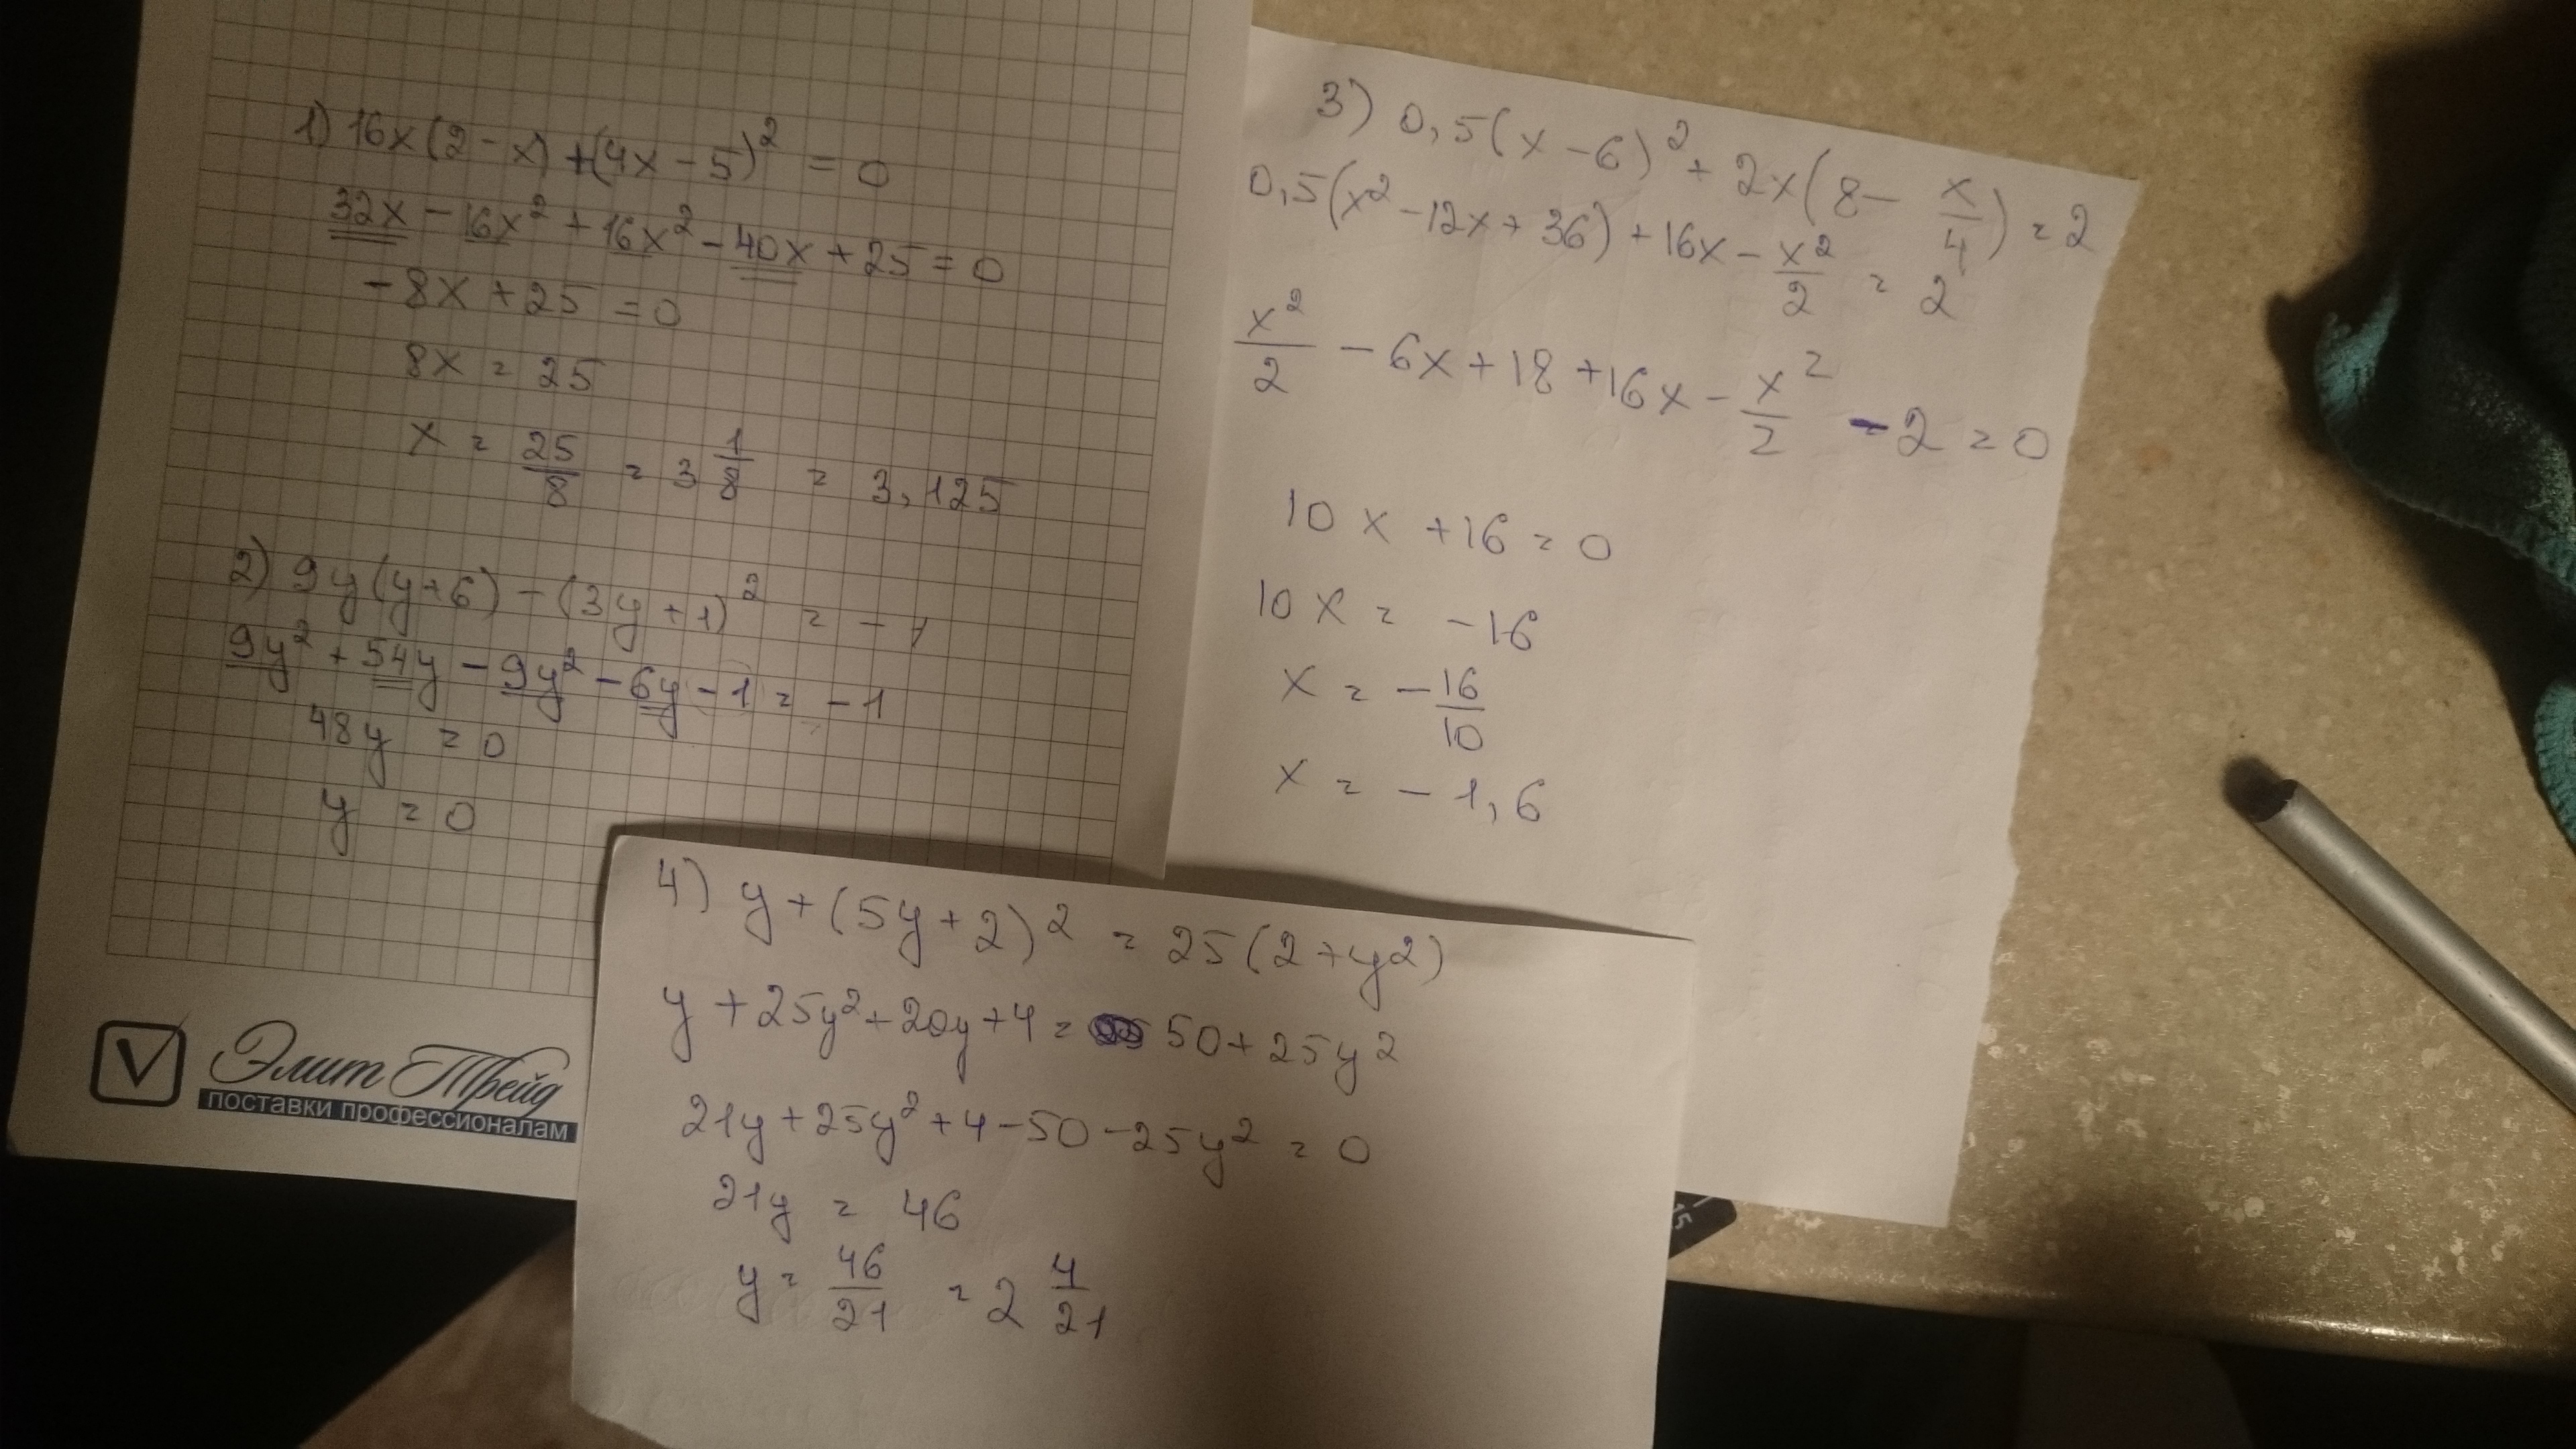 1) 16x(2-x)+(4x-5)² = 0
32x - 16x² + 16x² - 40x + 25 = 0
-8x + 25 = 0
8x = 25
x = 25/8 = 3 1/8 = 3,125
2) 9y(y+6) - (3y+1)² = -1
9y² + 54y - 9y² - 6y - 1 = -1
48y = 0
y = 0
Элит Трейд
поставки профессионалам
3) 0,5(x-6)² + 2x(8 - x/4) = 2
0,5(x² - 12x + 36) + 16x - x²/2 = 2
x²/2 - 6x + 18 + 16x - x²/2 - 2 = 0
10x + 16 = 0
10x = -16
x = -16/10
x = -1,6
4) y + (5y+2)² = 25(2+y2)
y + 25y² + 20y + 4 = 50 + 25y²
21y + 25y² + 4 - 50 - 25y² = 0
21y = 46
y = 46/21 = 2 4/21
15